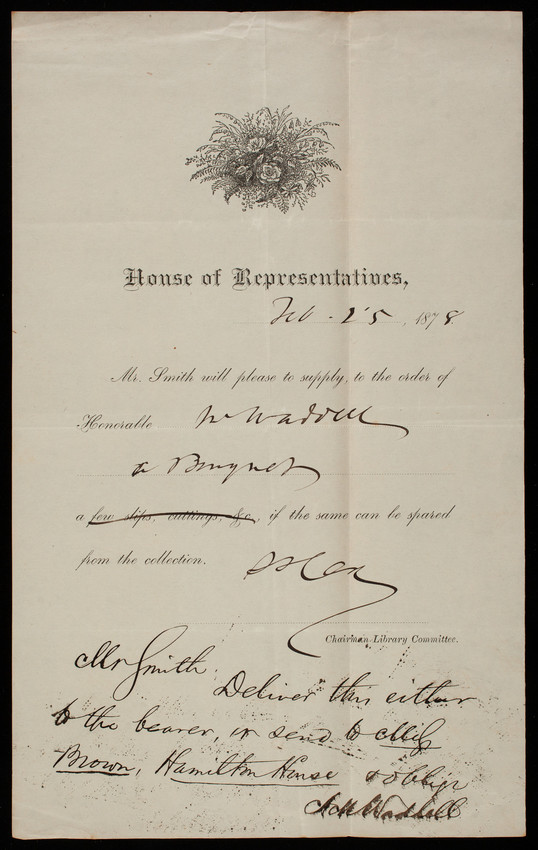 House of Representatives,
Feb. 25, 1878
Mr. Smith will please to supply, to the order of
Honorable Mr Waddell
a Bouquet
a few slips, cuttings, &c., if the same can be spared
from the collection.
SS Cox
Chairman Library Committee.
Mr Smith.
Deliver this either
to the bearer, or send to Miss
Brown, Hamilton House & oblige
A M Waddell